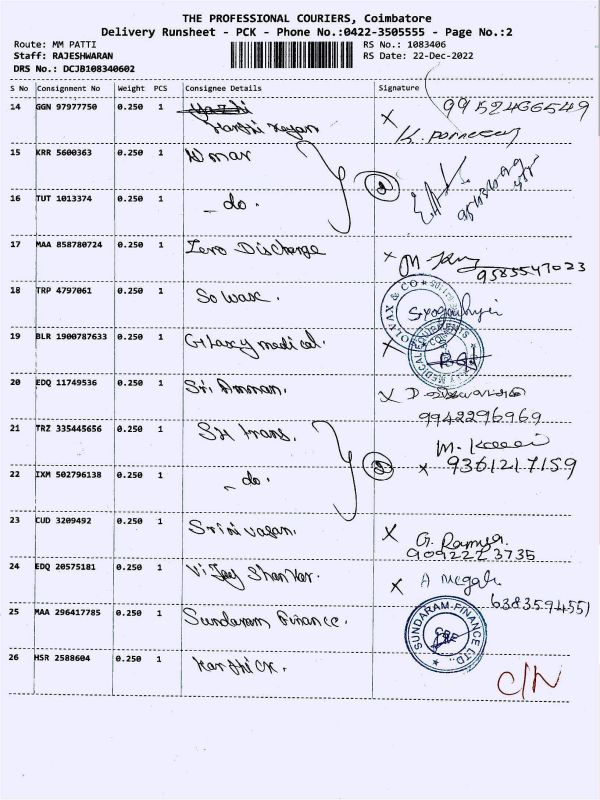 THE PROFESSIONAL COURIERS, Coimbatore
Delivery Runsheet - PCK - Phone No.:0422-3505555 - Page No.:2
Route: MM PATTI RS No.: 1083406
Staff: RAJESHWARAN RS Date: 22-Dec-2022
DRS No.: DCJB108340602
S No Consignment No Weight PCS Consignee Details Signature
14 GGN 97977750 0.250 1 99524
15 KRR 5600363 0.250 1
16 TUT 1013374 0.250 1 - do . 2
17 MAA 858780724 0.250 1 Zero Discharge 9585547023
18 TRP 4797061 0.250 1
19 BLR 1900787633 0.250 1 Galaxy medical.
20 EDQ 11749536 0.250 1 Sri Amman. 9942296969
21 TRZ 335445656 0.250 1 SH trans. 9361217159
22 IXM 502796138 0.250 1 - do . 2
23 CUD 3209492 0.250 1 Srinivasan. G. Ramya. 9092223735
24 EDQ 20575181 0.250 1 Vijay Shankar. 6383594551
25 MAA 296417785 0.250 1 Sundaram Finance. SUNDARAM-FINANCE LTD..
26 HSR 2588604 0.250 1 C/N